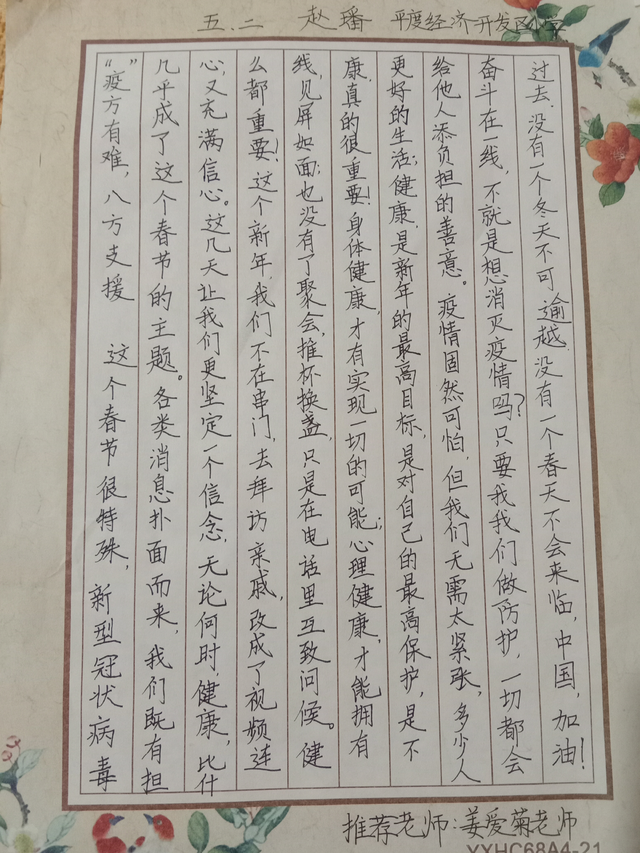 五.二 赵璠 平度经济开发区小学
“疫方有难，八方支援 这个春节很特殊，新型冠状病毒
几乎成了这个春节的主题。各类消息扑面而来，我们既有担
心，又充满信心。这几天让我们更坚定一个信念，无论何时，健康，比什
么都重要！这个新年，我们不在串门，去拜访亲戚，改成了视频连
线，见屏如面；也没有了聚会，推杯换盏，只是在电话里互致问候。健
康，真的很重要！身体健康，才有实现一切的可能；心理健康，才能拥有
更好的生活；健康，是新年的最高目标，是对自己的最高保护，是不
给他人添负担的善意。疫情固然可怕，但我们无需太紧张，多少人
奋斗在一线，不就是想消灭疫情吗？只要我我们做防护，一切都会
过去，没有一个冬天不可逾越，没有一个春天不会来临，中国，加油！
推荐老师：姜爱菊老师
YXHC68A4-21